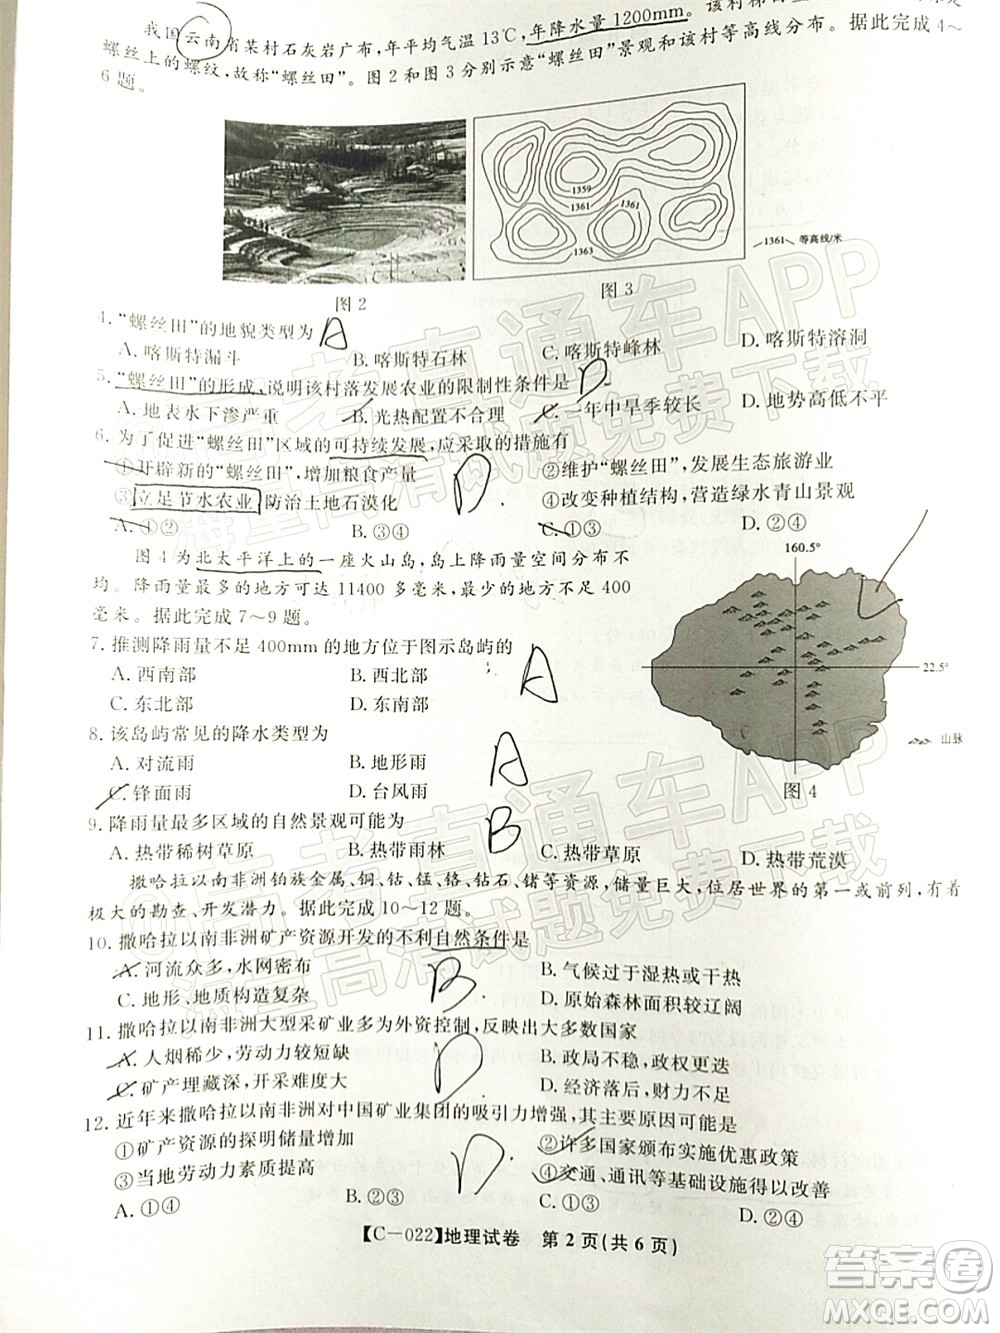 我国云南省某村石灰岩广布,年平均气温13℃,年降水量1200mm。该村梯田
螺丝上的螺纹,故称“螺丝田”。图2和图3分别示意“螺丝田”景观和该村等高线分布。据此完成4~
6题。
1359
1361
1361
1363
1361 等高线/米
图2
图3
4.“螺丝田”的地貌类型为 A
A.喀斯特漏斗 B.喀斯特石林 C.喀斯特峰林 D.喀斯特溶洞
5.“螺丝田”的形成,说明该村落发展农业的限制性条件是 D
A.地表水下渗严重 B.光热配置不合理 C.一年中旱季较长 D.地势高低不平
6.为了促进“螺丝田”区域的可持续发展,应采取的措施有
①开辟新的“螺丝田”,增加粮食产量 ②维护“螺丝田”,发展生态旅游业
③立足节水农业,防治土地石漠化 ④改变种植结构,营造绿水青山景观
D
A.①② B.③④ C.①③ D.②④
图4为北太平洋上的一座火山岛,岛上降雨量空间分布不
均。降雨量最多的地方可达11400多毫米,最少的地方不足400
毫米。据此完成7~9题。
160.5°
22.5°
山脉
图4
7.推测降雨量不足400mm的地方位于图示岛屿的
A.西南部 B.西北部
C.东北部 D.东南部
A
8.该岛屿常见的降水类型为
A.对流雨 B.地形雨
C.锋面雨 D.台风雨
A
9.降雨量最多区域的自然景观可能为 B
A.热带稀树草原 B.热带雨林 C.热带草原 D.热带荒漠
撒哈拉以南非洲铂族金属、铜、钴、锰、铬、钻石、铌等资源,储量巨大,位居世界的第一或前列,有着
极大的勘查、开发潜力。据此完成10~12题。
10.撒哈拉以南非洲矿产资源开发的不利自然条件是
A.河流众多,水网密布 B.气候过于湿热或干热
C.地形、地质构造复杂 D.原始森林面积较辽阔
B
11.撒哈拉以南非洲大型采矿业多为外资控制,反映出大多数国家
A.人烟稀少,劳动力较短缺 B.政局不稳,政权更迭
C.矿产埋藏深,开采难度大 D.经济落后,财力不足
D
12.近年来撒哈拉以南非洲对中国矿业集团的吸引力增强,其主要原因可能是
①矿产资源的探明储量增加 ②许多国家颁布实施优惠政策
③当地劳动力素质提高 ④交通、通讯等基础设施得以改善
D
A.①② B.②③ C.①③ D.②④
【C-022】地理试卷 第2页(共6页)
答案圈
MXQE.COM